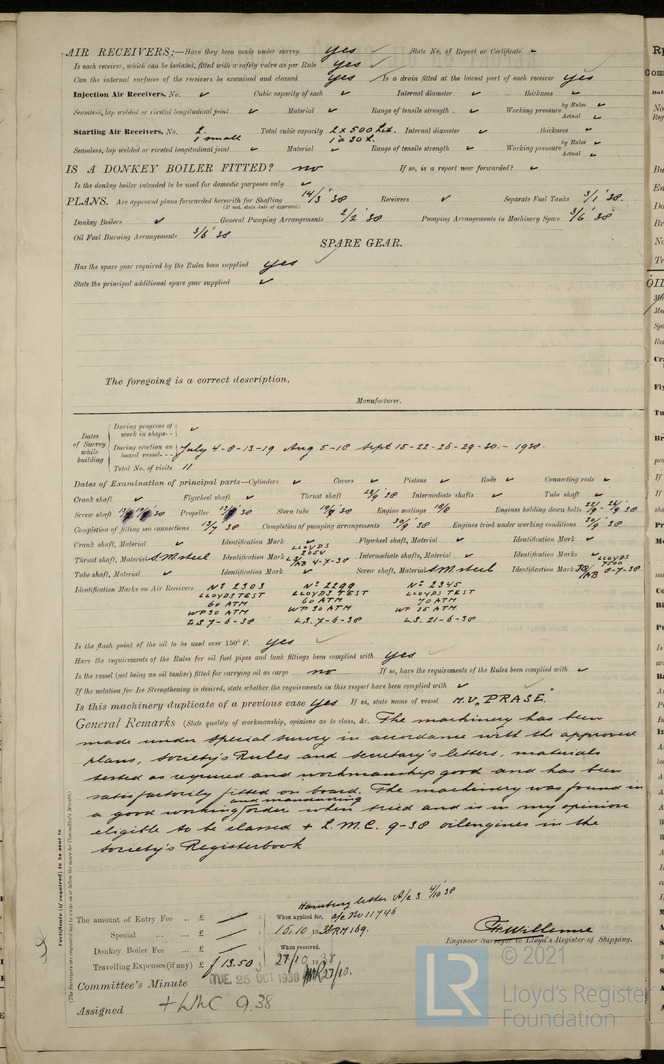 AIR RECEIVERS:—Have they been made under survey yes ✓ State No. of Report or Certificate ✓
Is each receiver, which can be isolated, fitted with a safety valve as per Rule yes ✓
Can the internal surfaces of the receivers be examined and cleaned yes ✓ Is a drain fitted at the lowest part of each receiver yes ✓
Injection Air Receivers, No. ✓ Cubic capacity of each ✓ Internal diameter ✓ thickness ✓
Seamless, lap welded or riveted longitudinal joint ✓ Material ✓ Range of tensile strength ✓ Working pressure by Rules ✓ Actual ✓
Starting Air Receivers, No. 2. 1 small Total cubic capacity 2 x 500 Lit. 1 a 30 L. Internal diameter ✓ thickness ✓
Seamless, lap welded or riveted longitudinal joint ✓ Material ✓ Range of tensile strength ✓ Working pressure by Rules ✓ Actual ✓
IS A DONKEY BOILER FITTED? no If so, is a report now forwarded? ✓
Is the donkey boiler intended to be used for domestic purposes only ✓
PLANS. Are approved plans forwarded herewith for Shafting 14/3 '38 Receivers ✓ Separate Fuel Tanks 3/1 '38.
(If not, state date of approval)
Donkey Boilers ✓ General Pumping Arrangements 2/2 '38 Pumping Arrangements in Machinery Space 3/6 '38
Oil Fuel Burning Arrangements 3/5 '38
SPARE GEAR.
Has the spare gear required by the Rules been supplied yes ✓
State the principal additional spare gear supplied ✓
The foregoing is a correct description,
Manufacturer.
Dates of Survey while building
During progress of work in shops-- ✓
During erection on board vessel--- July 4-8-13-19 Aug 5-18 Sept 15-22-26-29-30.- 1938
Total No. of visits 11
Dates of Examination of principal parts—Cylinders ✓ Covers ✓ Pistons ✓ Rods ✓ Connecting rods ✓
Crank shaft ✓ Flywheel shaft ✓ Thrust shaft 22/9 38 Intermediate shafts ✓ Tube shaft ✓
Screw shaft 38 Propeller 38 Stern tube 19/7 38 Engine seatings 19/8 Engines holding down bolts 22/9 - 26/9 38
Completion of fitting sea connections 13/7 38 Completion of pumping arrangements 30/9 38 Engines tried under working conditions 30/9 38
Crank shaft, Material ✓ Identification Mark ✓ Flywheel shaft, Material ✓ Identification Mark ✓
Thrust shaft, Material S.M. steel Identification Mark LLOYDS 2054 AB 4-7-38 Intermediate shafts, Material ✓ Identification Marks ✓
Tube shaft, Material ✓ Identification Mark ✓ Screw shaft, Material S.M. steel Identification Mark LLOYDS 7500 AB 8-7-38
Identification Marks on Air Receivers No 2303 No 2299 No 2345
LLOYDS TEST LLOYDS TEST LLOYDS TEST
60 ATM 60 ATM 70 ATM
WP 30 ATM WP 30 ATM WP 35 ATM
L.S. 7-6-38 L.S. 7-6-38 L.S. 21-6-38
Is the flash point of the oil to be used over 150° F. yes ✓
Have the requirements of the Rules for oil fuel pipes and tank fittings been complied with yes ✓
Is the vessel (not being an oil tanker) fitted for carrying oil as cargo no If so, have the requirements of the Rules been complied with ✓
If the notation for Ice Strengthening is desired, state whether the requirements in this respect have been complied with ✓
Is this machinery duplicate of a previous case yes If so, state name of vessel M.V. "PRASE."
General Remarks (State quality of workmanship, opinions as to class, &c. The machinery has been
made under special survey in accordance with the approved
plans, Society's Rules and secretary's letters, materials
tested as required and workmanship good and has been
satisfactorily fitted on board. The machinery was found in
a good working and manœuvring order when tried and is in my opinion
eligible to be classed + L.M.C. 9-38 oilengines in the
Society's Registerbook
Certificate (if required) to be sent to
(The Surveyors are requested not to write on or below the space for Committee's Minute.)
Hamburg letter A/c 3 4/10 38
The amount of Entry Fee .. £ — : When applied for, a/c No 11746
Special ... ... £ — : 15.10 1938 RM 169.
Donkey Boiler Fee ... £ — : When received,
Travelling Expenses (if any) £ 13.50 : 27/10 1938
Engineer Surveyor to Lloyd's Register of Shipping.
Committee's Minute TUE. 25 OCT 1938
Assigned + LMC 9.38
© 2021
LR
Lloyd's Register
Foundation